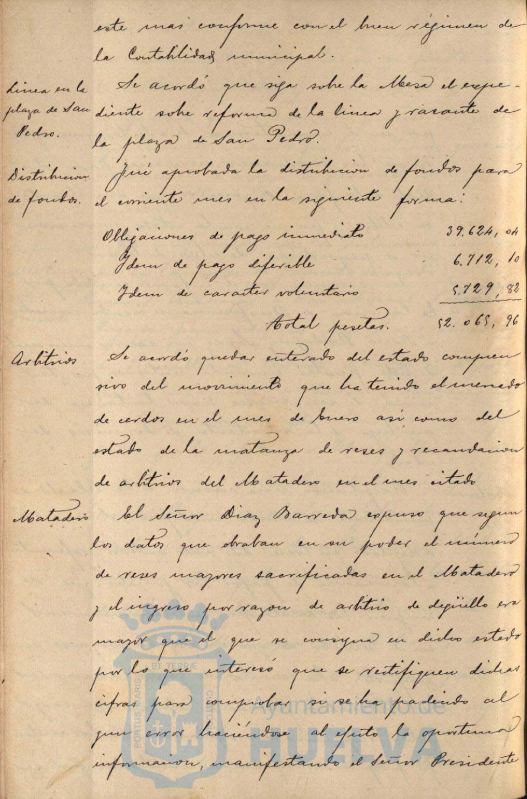 este mas conforme con el buen régimen de
la Contabilidad municipal.
Linea en la
plaza de San
Pedro.
Se acordó que siga sobre la Mesa el expe-
diente sobre reforma de la linea y rasante de
la plaza de San Pedro.
Distribucion
de fondos.
Fué aprobada la distribucion de fondos para
el corriente mes en la siguiente forma:
Obligaciones de pago inmediato 39.624,04
Idem de pago diferible 6.712,10
Idem de caracter voluntario 5.729,82
Total pesetas. 52.065,96
Arbitrios
Se acordó quedar enterado del estado compren
sivo del movimiento que ha tenido el mercado
de cerdos en el mes de Enero así como del
estado de la matanza de reses y recaudacion
de arbitrios del Matadero en el mes citado
Matadero
El Señor Diaz Barreda expuso que segun
los datos que obraban en su poder el número
de reses mayores sacrificadas en el Matadero
y el ingreso por razon de arbitrio de degüello era
mayor que el que se consigna en dicho estado
por lo que interesó que se rectifiquen dichas
cifras para comprobar si se ha padecido al
gun error haciéndose al efecto la oportuna
informacion, manifestando el Señor Presidente
Ayuntamiento de
HUELVA